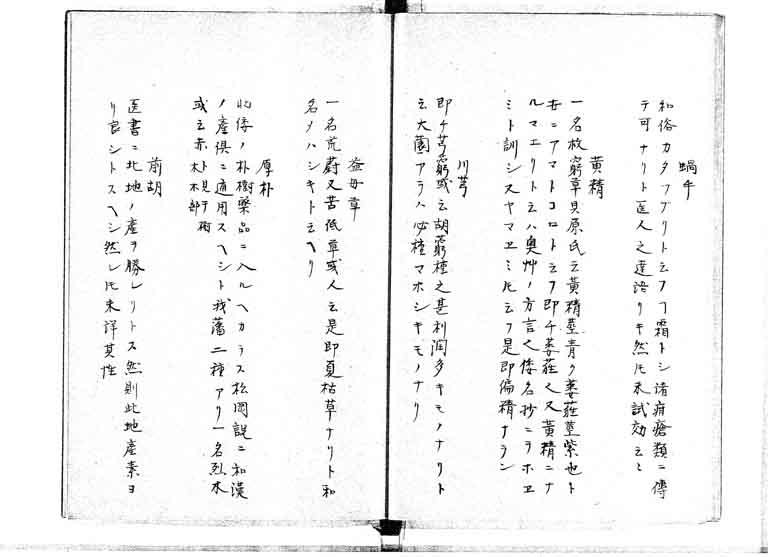 蝸牛
和俗カタツブリト云フ霜トシ諸疳瘡類ニ傳
テ可ナリト医人之達語リキ然𪜈未試効云々
黄精
一名救窮草貝原氏云黄精莖青ク萎蕤莖紫也ト
世ニアマトコロト云フ即チ萎蕤也又黄精ニナ
ルマエリト云ハ奥州ノ方言也倭名抄ニヲホヱ
ミト訓シスヤマヱミ𪜈云フ是即偏精ナラン
川芎
即チ芎藭或云胡藭植之甚利潤多キモノナリト
云大園アラハ必植マホシキモノナリ
益母草
一名茺蔚又苦低草或人云是即夏枯草ナリト和
名メハシキト云ヘリ
厚朴
此倭ノ朴樹藥品ニ入ルヘカラス松岡説ニ和漢
ノ産倶ニ通用スヘシト我藩二種アリ一名烈朴
或云赤朴見于術木部
前胡
医書ニ北地ノ産ヲ勝レリトス然則此地産素ヨ
リ良シトスヘシ然レ𪜈未詳其性